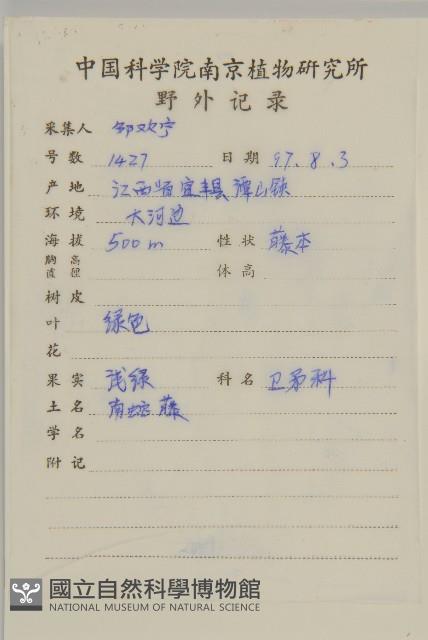 中国科学院南京植物研究所
野外记录
采集人 邹欢宁
号数 1427 日期 97.8.3
产地 江西省宜丰县潭山镇
环境 大河边
海拔 500m 性状 藤本
胸高直径 体高
树皮
叶 绿色
花
果实 浅绿 科名 卫矛科
土名 南蛇藤
学名
附记
國立自然科學博物館
NATIONAL MUSEUM OF NATURAL SCIENCE